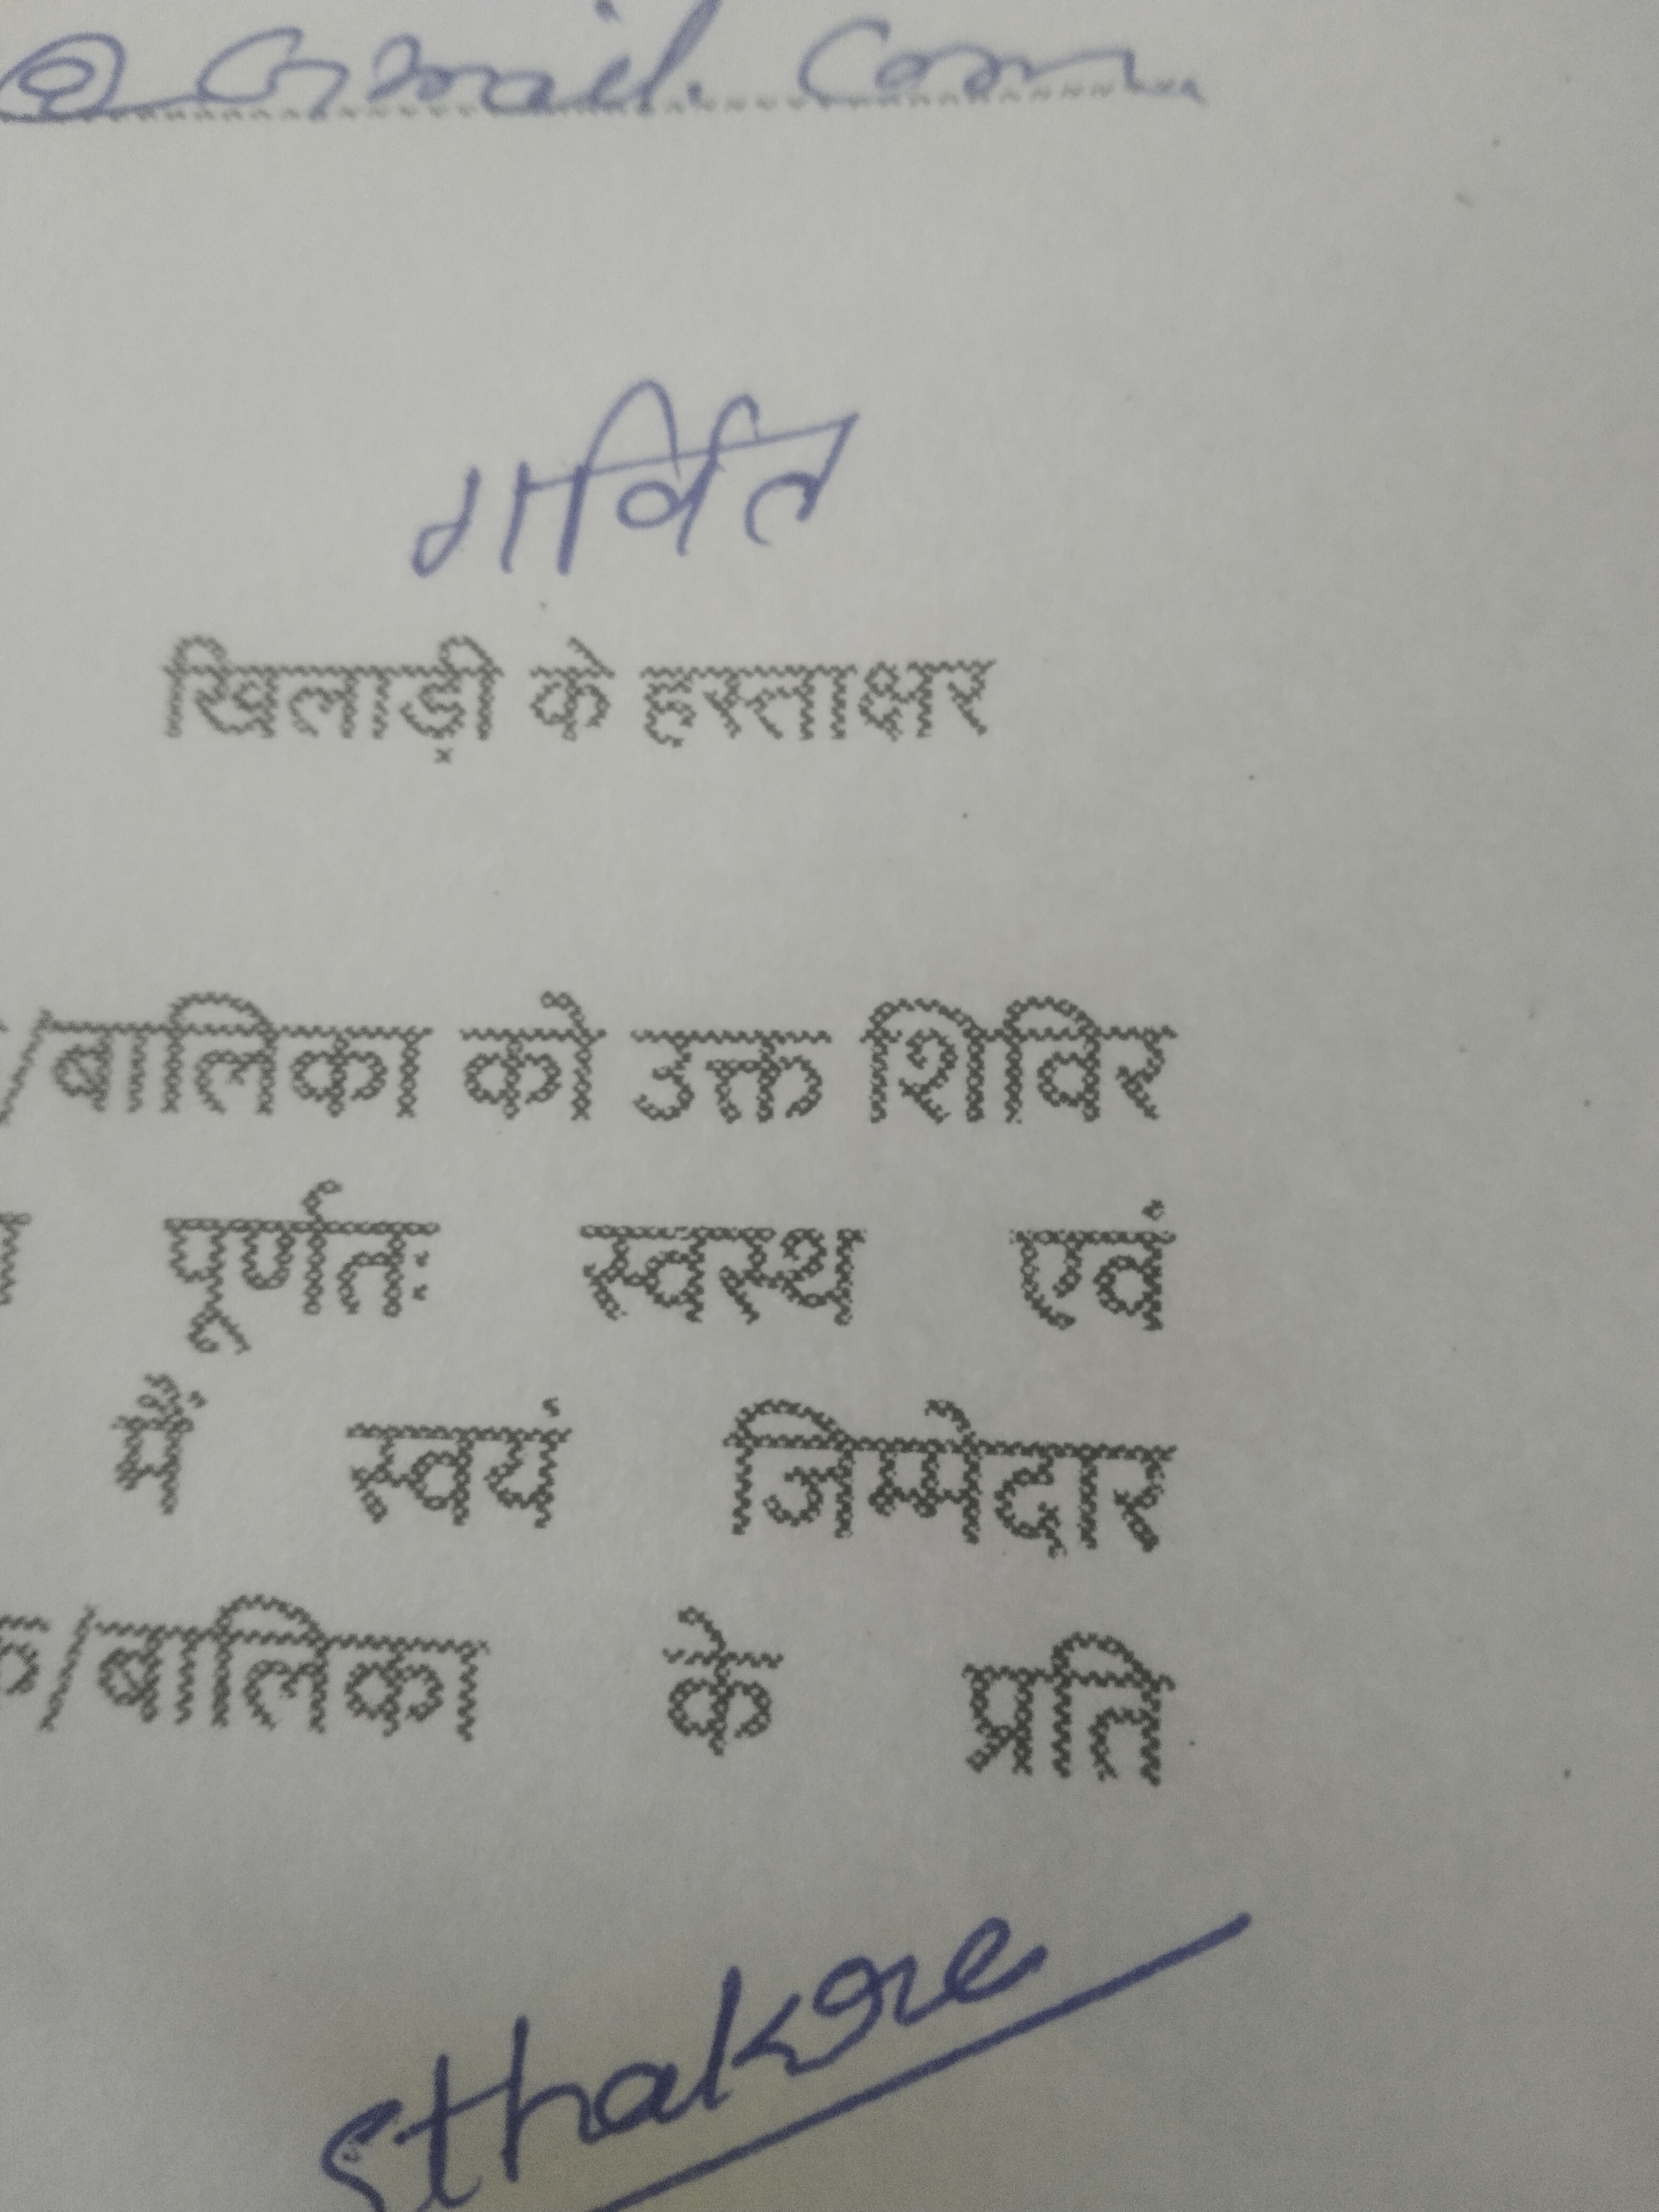 @ Gmail. Com
गर्वित
खिलाड़ी के हस्ताक्षर
/बालिका को उक्त शिविर
पूर्णतः स्वस्थ एवं
मैं स्वयं जिम्मेदार
/बालिका के प्रति
Sthakre